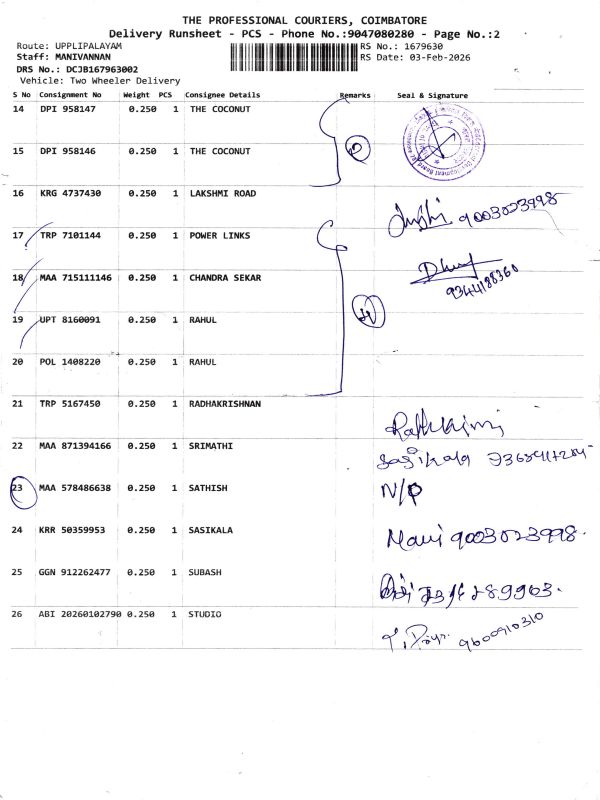 THE PROFESSIONAL COURIERS, COIMBATORE
Delivery Runsheet - PCS - Phone No.:9047080280 - Page No.:2
Route: UPPLIPALAYAM RS No.: 1679630
Staff: MANIVANNAN RS Date: 03-Feb-2026
DRS No.: DCJB167963002
Vehicle: Two Wheeler Delivery
S No Consignment No Weight PCS Consignee Details Remarks Seal & Signature
14 DPI 958147 0.250 1 THE COCONUT
15 DPI 958146 0.250 1 THE COCONUT
16 KRG 4737430 0.250 1 LAKSHMI ROAD 9003023998
17 TRP 7101144 0.250 1 POWER LINKS
18 MAA 715111146 0.250 1 CHANDRA SEKAR 9344188360
19 UPT 8160091 0.250 1 RAHUL
20 POL 1408220 0.250 1 RAHUL
21 TRP 5167450 0.250 1 RADHAKRISHNAN
22 MAA 871394166 0.250 1 SRIMATHI Sasikala
23 MAA 578486638 0.250 1 SATHISH N/P
24 KRR 50359953 0.250 1 SASIKALA Mani 9003023998.
25 GGN 912262477 0.250 1 SUBASH
26 ABI 20260102790 0.250 1 STUDIO 9600910310